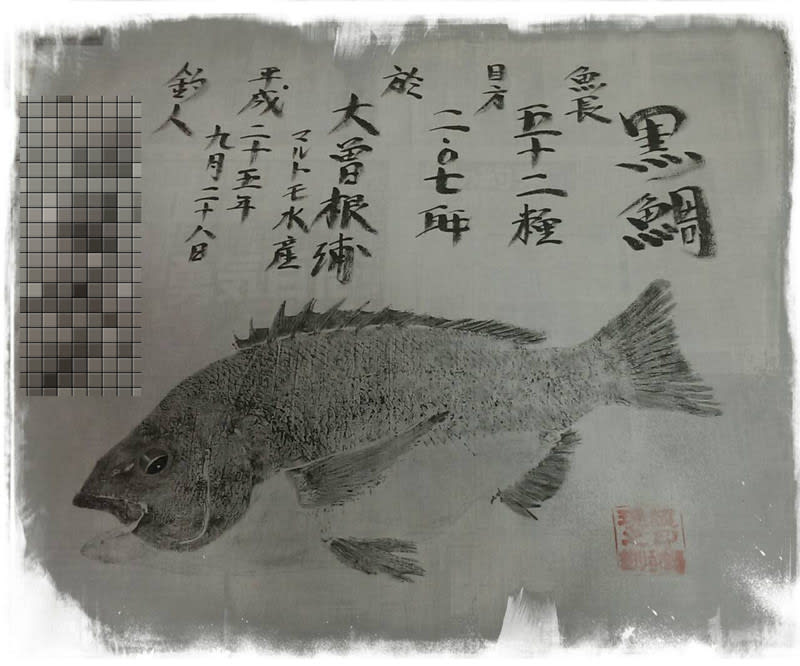 黒鯛
魚長
五十二糎
目方
二・〇七瓩
於
大曽根浦
マルトモ水産
平成二十五年
九月二十八日
釣人